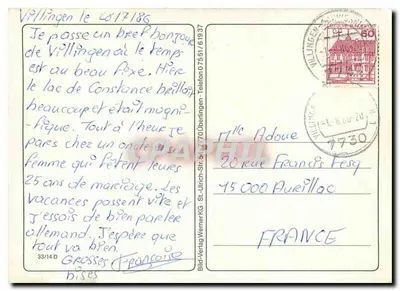 Villingen le 20/7/86
Je passe un bref bonjour
de Villingen où le temps
est au beau fixe. Hier
le lac de Constance brillait
beaucoup et était magni-
fique. Tout à l'heure je
pars chez un oncle et sa
femme qui fêtent leurs
25 ans de mariage. Les
vacances passent vite et
j'essais de bien parler
allemand. J'espère que
tout va bien.
Grosses Françoise
bises
33/14 D
Bild-Verlag Werner KG · St.-Ulrich-Str. · 7770 Überlingen · Telefon 07551/61937
60
VILLINGEN
7730
Mlle Adoue
20 rue Francis Fesq
15000 Aurillac
FRANCE